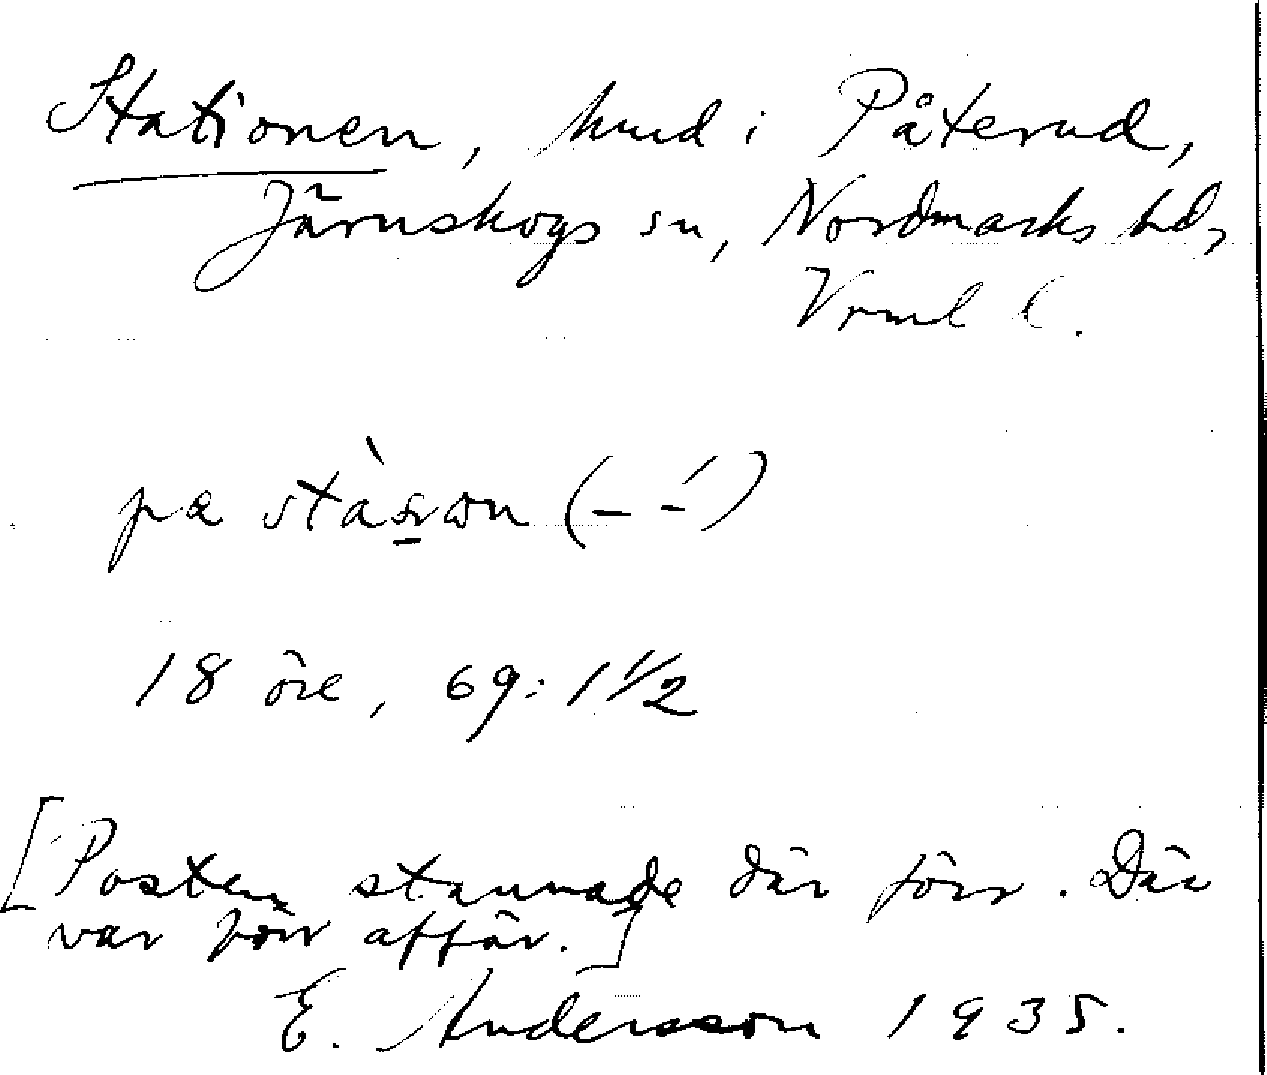 Stationen, hmd i Påterud,
Järnskogs sn, Nordmarks hd,
Vrml l.
pa
18 öre, 69: 1 1/2
[Posten stannade där förr. Där
var förr affär.]
E. Andersson 1935.